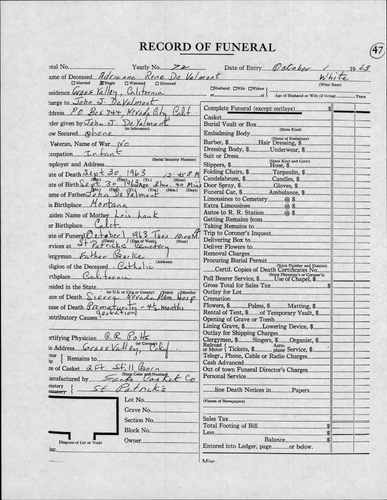 RECORD OF FUNERAL
47
Total No. Yearly No. 72 Date of Entry October 1 1963
ame of Deceased Adrienne Rene De Valmont White
Married Single Widowed Divorced (What Race)
Husband Wife Widow Age of Husband or Wife (if living) Years
esidence Grass Valley, California
harge to John J. DeValmont
ddress P O Box 744, Nevada City, Calif
rder given by John J. DeValmont
(or informant)
ow Secured phone
Veteran, Name of War No
ccupation Infant
(Social Security Number)
mployer and Address
ate of Death Sept 30 1963
ate of Birth Sept 30 1963 Age
ame of Father John De Valmont
is Birthplace Montana
aiden Name of Mother Lois
er Birthplace Calif.
ate of Funeral October 1 1963 Tues
ervices at St Patricks Cemetery
lergyman Father
eligion of the Deceased Catholic
(Address)
irthplace California
esided in the State
(or U.S. or City or County) (Years) (Months)
ace of Death Sierra Nevada Mem Hosp
use of Death Premature - 4½ months
gestation
ontributory Causes
ertifying Physician C R Potts
is Address Grass Valley, Calif
Remains to
ze of Casket 2 Ft Still Born
anufactured by Casket Co
St Patrick's
Lot No.
Grave No.
Section No.
Block No.
Owner
Diagram of Lot or Vault
Complete Funeral (except outlays) $
Casket
Burial Vault or Box
(State Kind)
Embalming Body
(Name of Embalmer)
Barber, $ Hair Dressing, $
Dressing Body, $ Underwear, $
Suit or Dress
(State Kind and Color)
Slippers, $ Hose, $
Folding Chairs, $ Tarpaulin, $
Candelabrum, $ Candles, $
Door Spray, $ Gloves, $
Funeral Car, $ Ambulance, $
Limousines to Cemetery @ $
Extra Limousines @ $
Autos to R. R. Station @ $
Getting Remains from
Taking Remains to
Trip to Coroner's Inquest
Delivering Box to
Deliver Flowers to
Removal Charges
Procuring Burial Permit
(State Number and District)
Cert. Copies of Death Certificates No.
(State Physician's or Coroner's)
Pall Bearer Service, $ Use of Chapel, $
Gross Total for Sales Tax $
Outlay for Lot
Cremation
Flowers, $ Palms, $ Matting, $
Rental of Tent, $ of Temporary Vault, $
Opening of Grave or Tomb
Lining Grave, $ Lowering Device, $
Outlay for Shipping Charges
Clergymen, $ Singers, $ Organist, $
Railroad or Motor Tickets, $ Aeroplane Service, $
Telegr., Phone, Cable or Radio Charges
Cash Advanced
Out of town Funeral Director's Charges
Personal Services
line Death Notices in Papers
(Names of Newspapers)
Sales Tax
Total Footing of Bill $
Less
Balance $
Entered into Ledger, page or below.